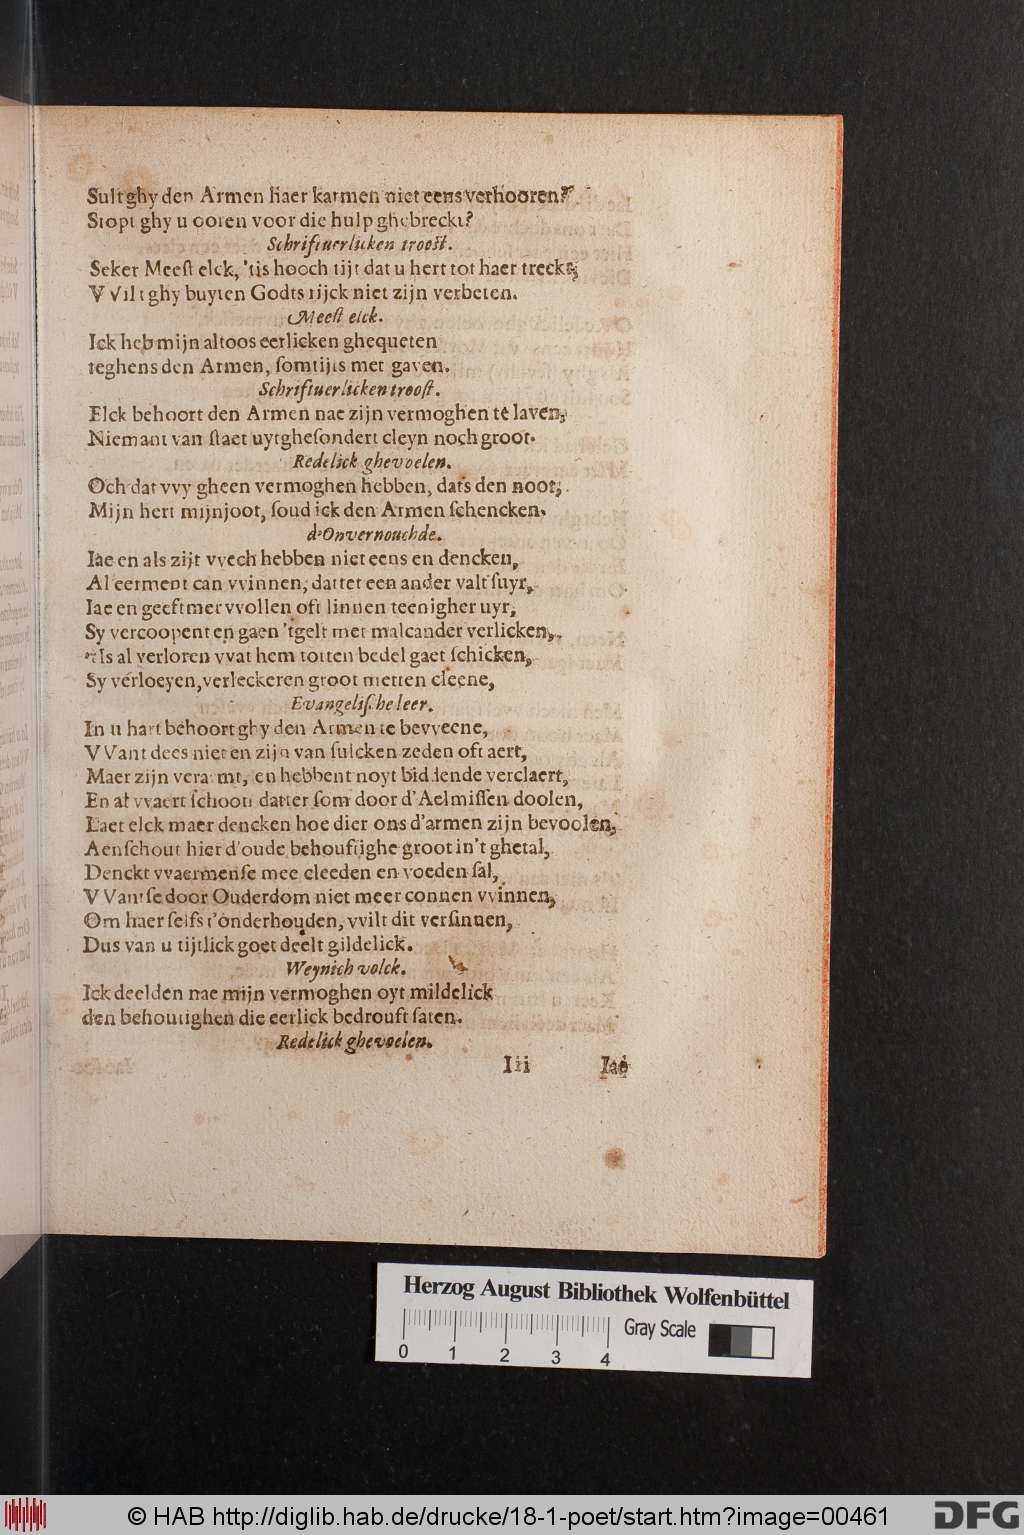 Sult ghy den Armen haer karmen niet eens verhooren?
Stopt ghy u ooren voor die hulp ghebreckt?
Schriftuerlicken troost.
Seker Meest elck, 'tis hooch tijt dat u hert tot haer treckt,
VVilt ghy buyten Godts rijck niet zijn verbeten.
Meest elck.
Ick heb mijn altoos eerlicken ghequeten
teghens den Armen, somtijts met gaven.
Schriftuerlicken troost.
Elck behoort den Armen nae zijn vermoghen te laven,
Niemant van staet uytghesondert cleyn noch groot.
Redelick ghevoelen.
Och dat vvy gheen vermoghen hebben, dats den noot,
Mijn hert mijnjoot, soud ick den Armen schencken.
d'Onvernouchde.
Iae en als zijt vvech hebben niet eens en dencken,
Al eerment can vvinnen, dattet een ander valt suyr,
Iae en geeftmer vvollen oft linnen teenigher uyr,
Sy vercoopent en gaen 'tgelt met malcander verlicken,
't Is al verloren vvat hem totten bedel gaet schicken,
Sy verloeyen, verleckeren groot metten cleene,
Evangelische leer.
In u hart behoort ghy den Armen te bevveene,
VVant dees niet en zijn van sulcken zeden oft aert,
Maer zijn verarmt, en hebbent noyt biddende verclaert,
En al vvaert schoon datter som door d'Aelmissen doolen,
Laet elck maer dencken hoe dier ons d'armen zijn bevoolen,
Aenschout hier d'oude behouftighe groot in't ghetal,
Denckt vvaermense mee cleeden en voeden sal,
VVantse door Ouderdom niet meer connen vvinnen,
Om haer selfs t'onderhouden, vvilt dit versinnen,
Dus van u tijtlick goet deelt gildelick.
Weynich volck.
Ick deelden nae mijn vermoghen oyt mildelick
den behoutighen die eerlick bedrouft saten.
Redelick ghevoelen.
Iii Iae
Herzog August Bibliothek Wolfenbüttel
Gray Scale
0 1 2 3 4
© HAB http://diglib.hab.de/drucke/18-1-poet/start.htm?image=00461
DFG